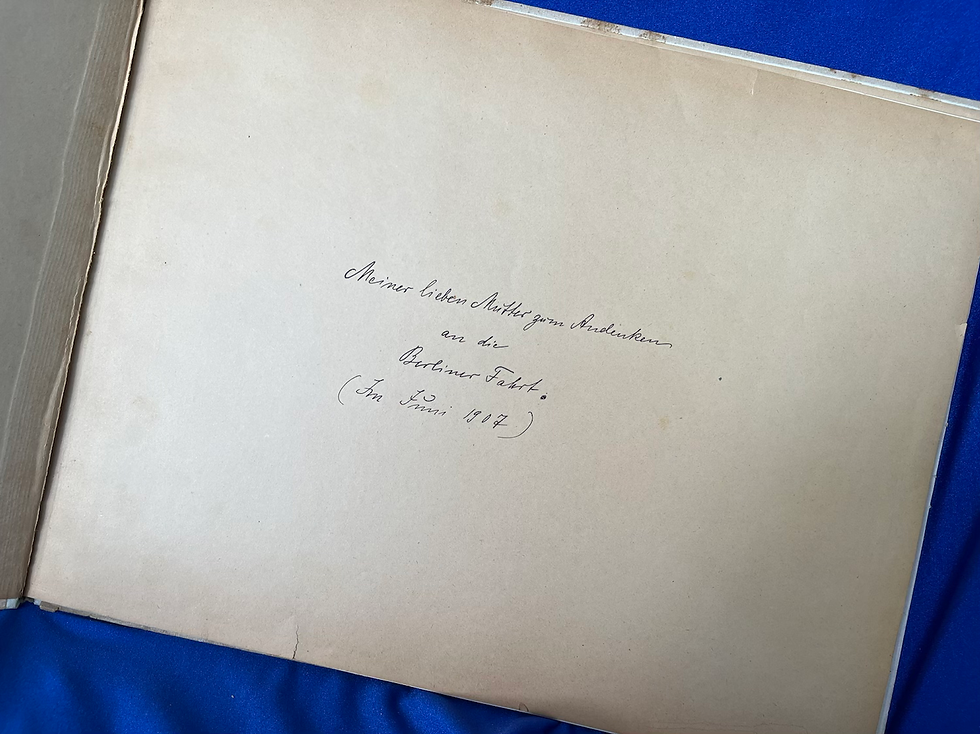 Meiner lieben Mutter zum Andenken
an die
Berliner Fahrt.
(Im Juni 1907)